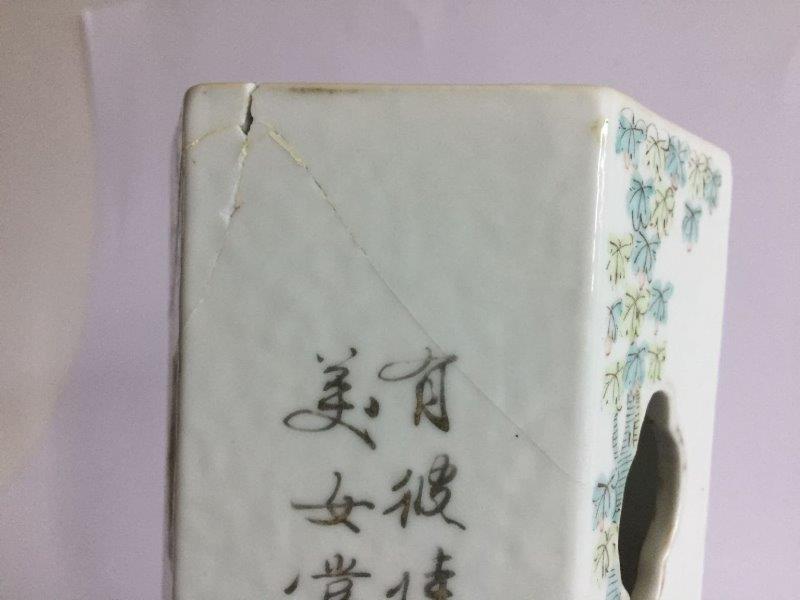 有彼佳
美女当